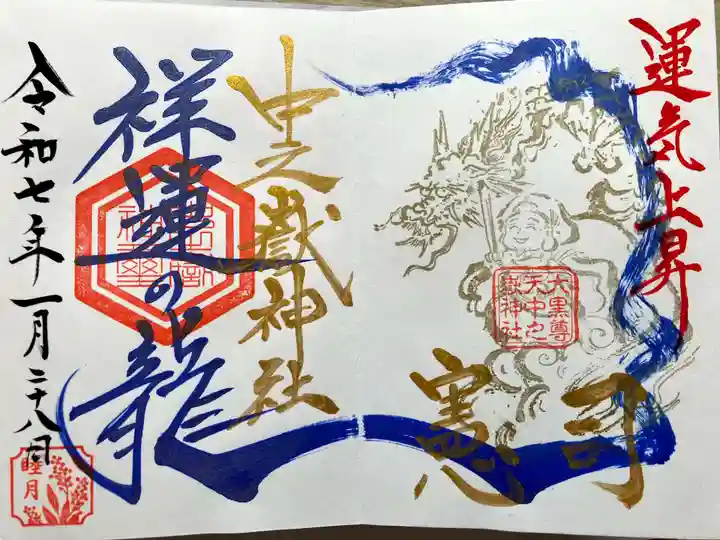 運気上昇
大黒尊
天中之
嶽神社
司
憲
中之嶽神社
祥運の龍
令和七年一月二十八日
睦月